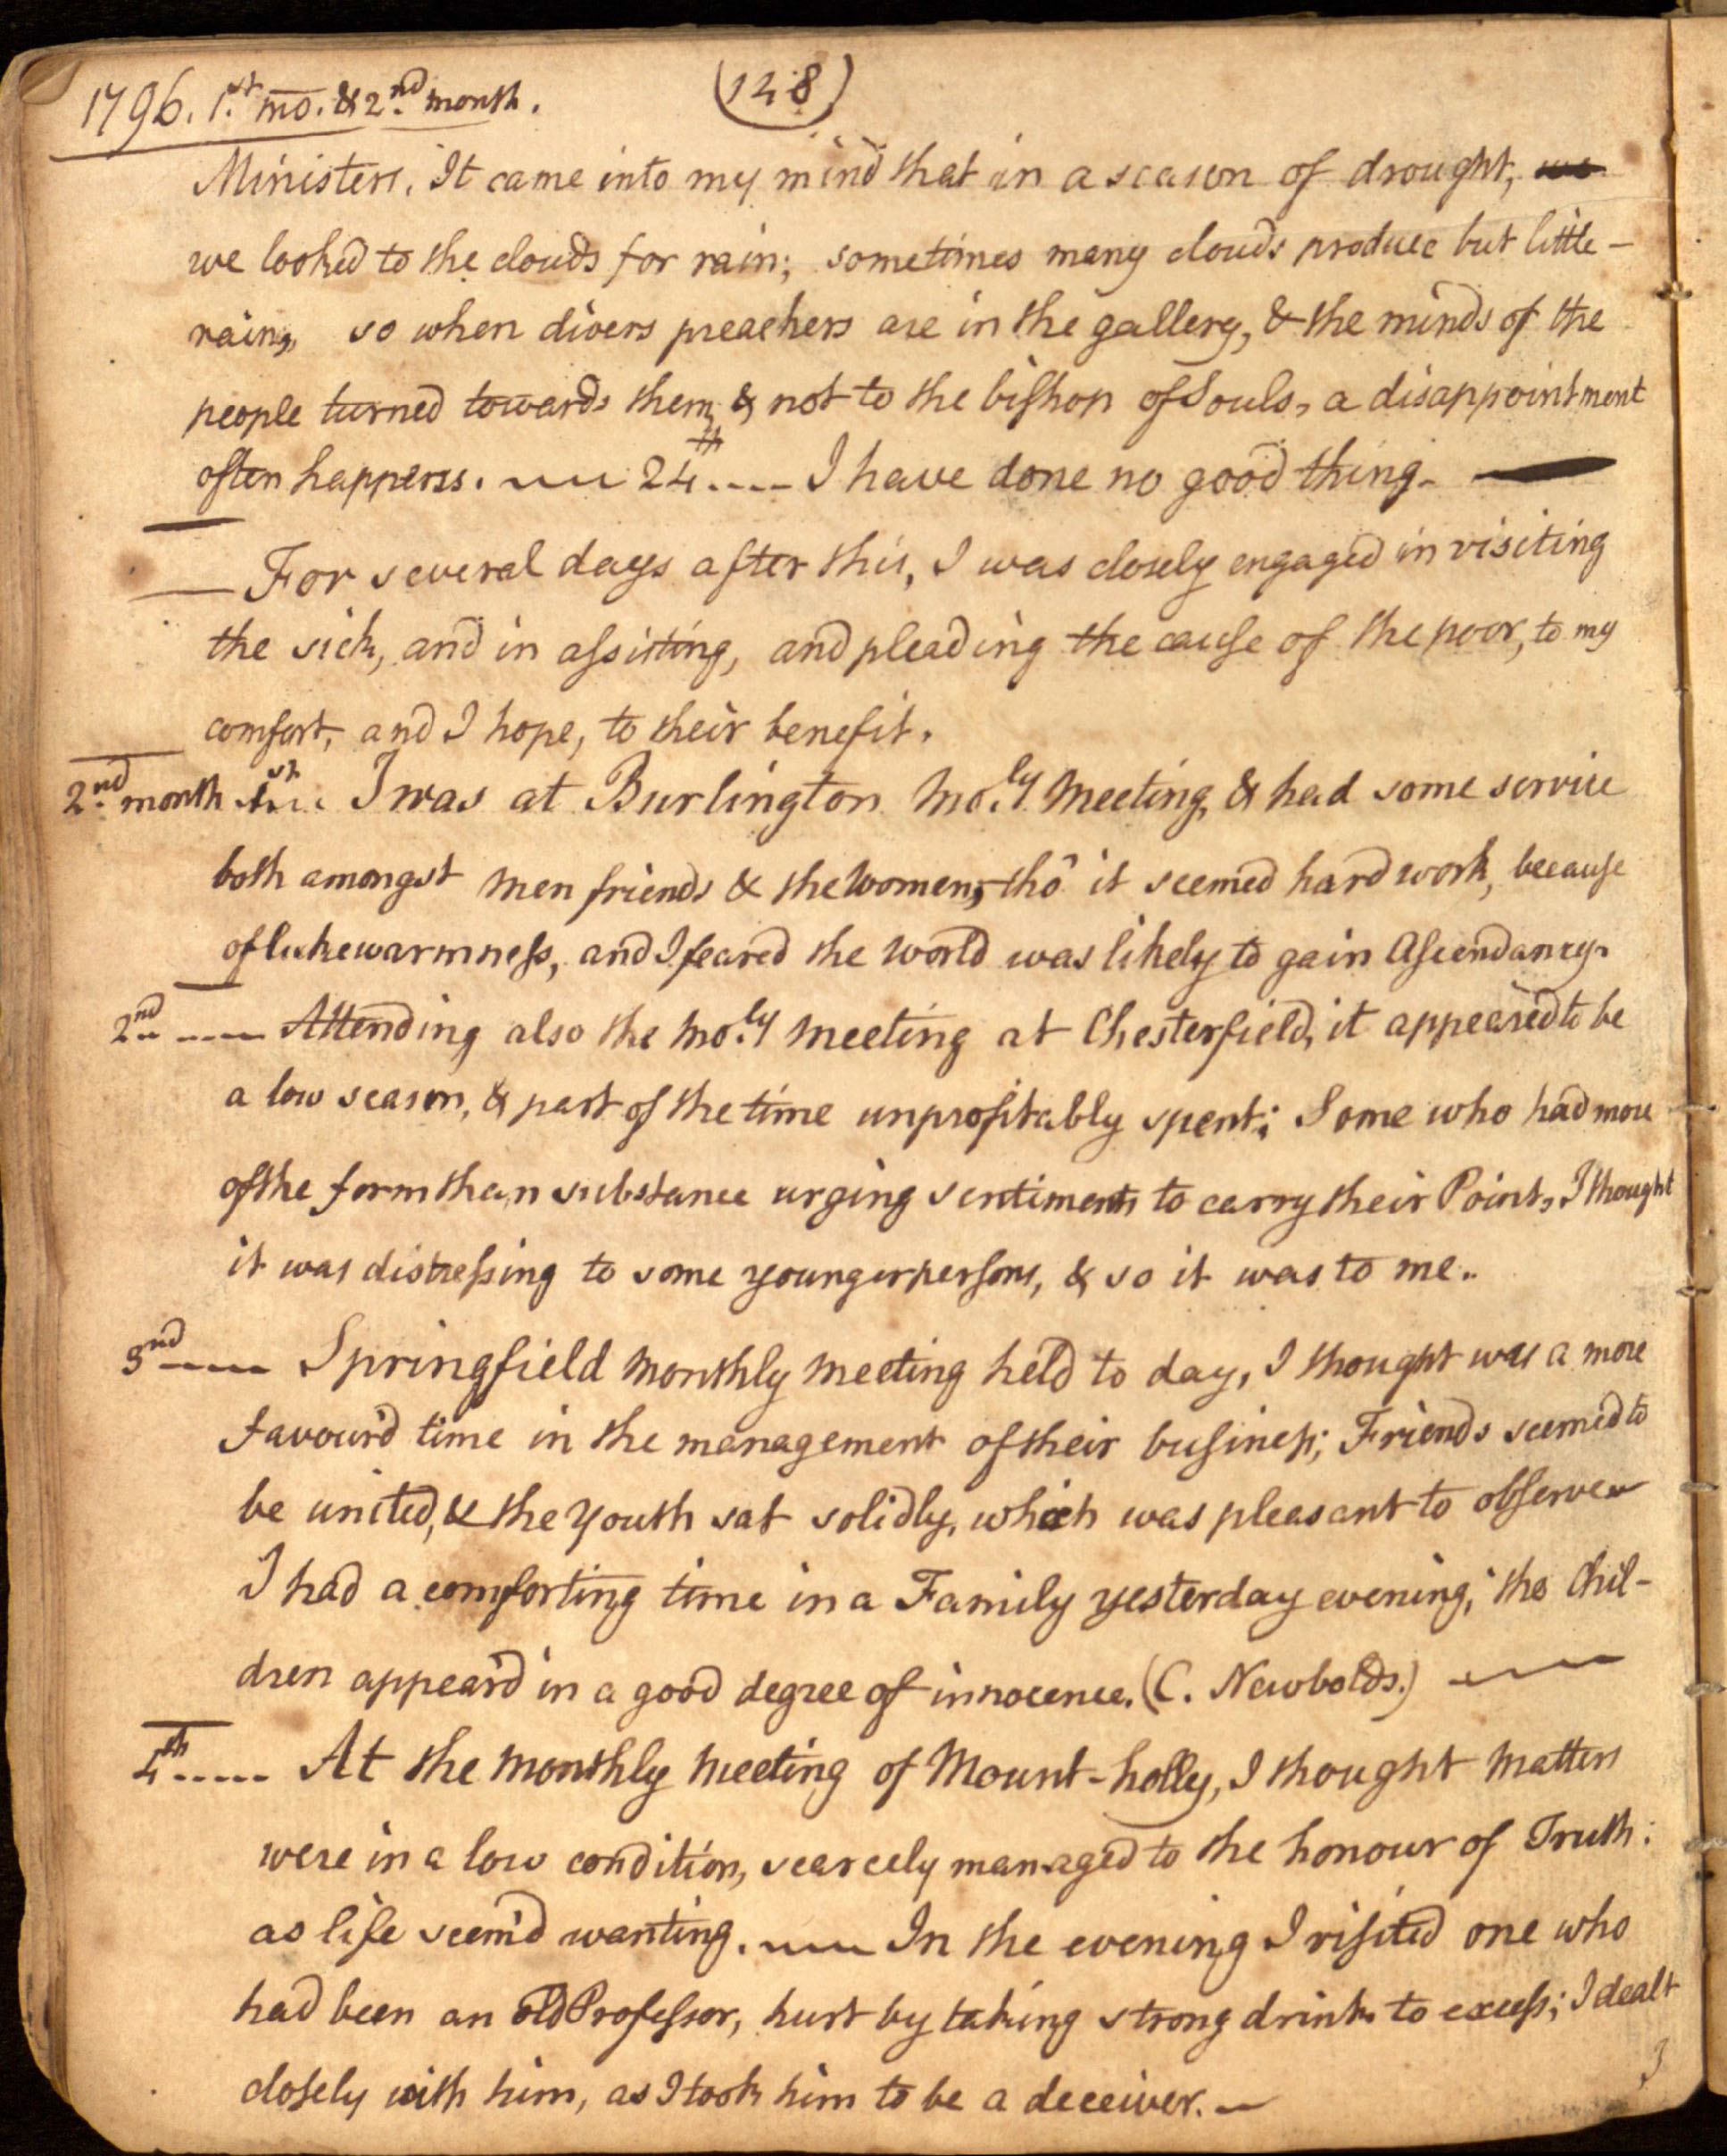 1796. 1.st mo. & 2.nd month.
(148)
Ministers. It came into my mind that in a season of drought, we
we looked to the clouds for rain; sometimes many clouds produce but little -
rain, so when divers preachers are in the gallery, & the minds of the
people turned towards them, & not to the bishop of Souls, a disappointment
often happens. 24th I have done no good thing.
For several days after this, I was closely engaged in visiting
the sick, and in assisting, and pleading the cause of the poor, to my
comfort, and I hope, to their benefit.
2.nd month 1st I was at Burlington Mo.ly Meeting, & had some service
both amongst men friends & the Women, tho' it seemed hard work, because
of lukewarmness, and I feared the World was likely to gain Ascendancy.
2nd Attending also the Mo.ly meeting at Chesterfield, it appeared to be
a low season, & part of the time unprofitably spent; Some who had more
of the form than substance urging sentiments to carry their Point, I thought
it was distressing to some younger persons, & so it was to me.
3nd Springfield Monthly Meeting held to day, I thought was a more
favour'd time in the management of their business; Friends seemed to
be united, & the Youth sat solidly, which was pleasant to observe
I had a comforting time in a Family yesterday evening; the Chil-
dren appear'd in a good degree of innocence. (C. Newbolds.)
4th At the Monthly Meeting of Mount-holly, I thought matters
were in a low condition, scarcely managed to the honour of Truth:
as life seem'd wanting. In the evening I visited one who
had been an old Professor, hurt by taking strong drink to excess; I dealt
closely with him, as I took him to be a deceiver. -
I